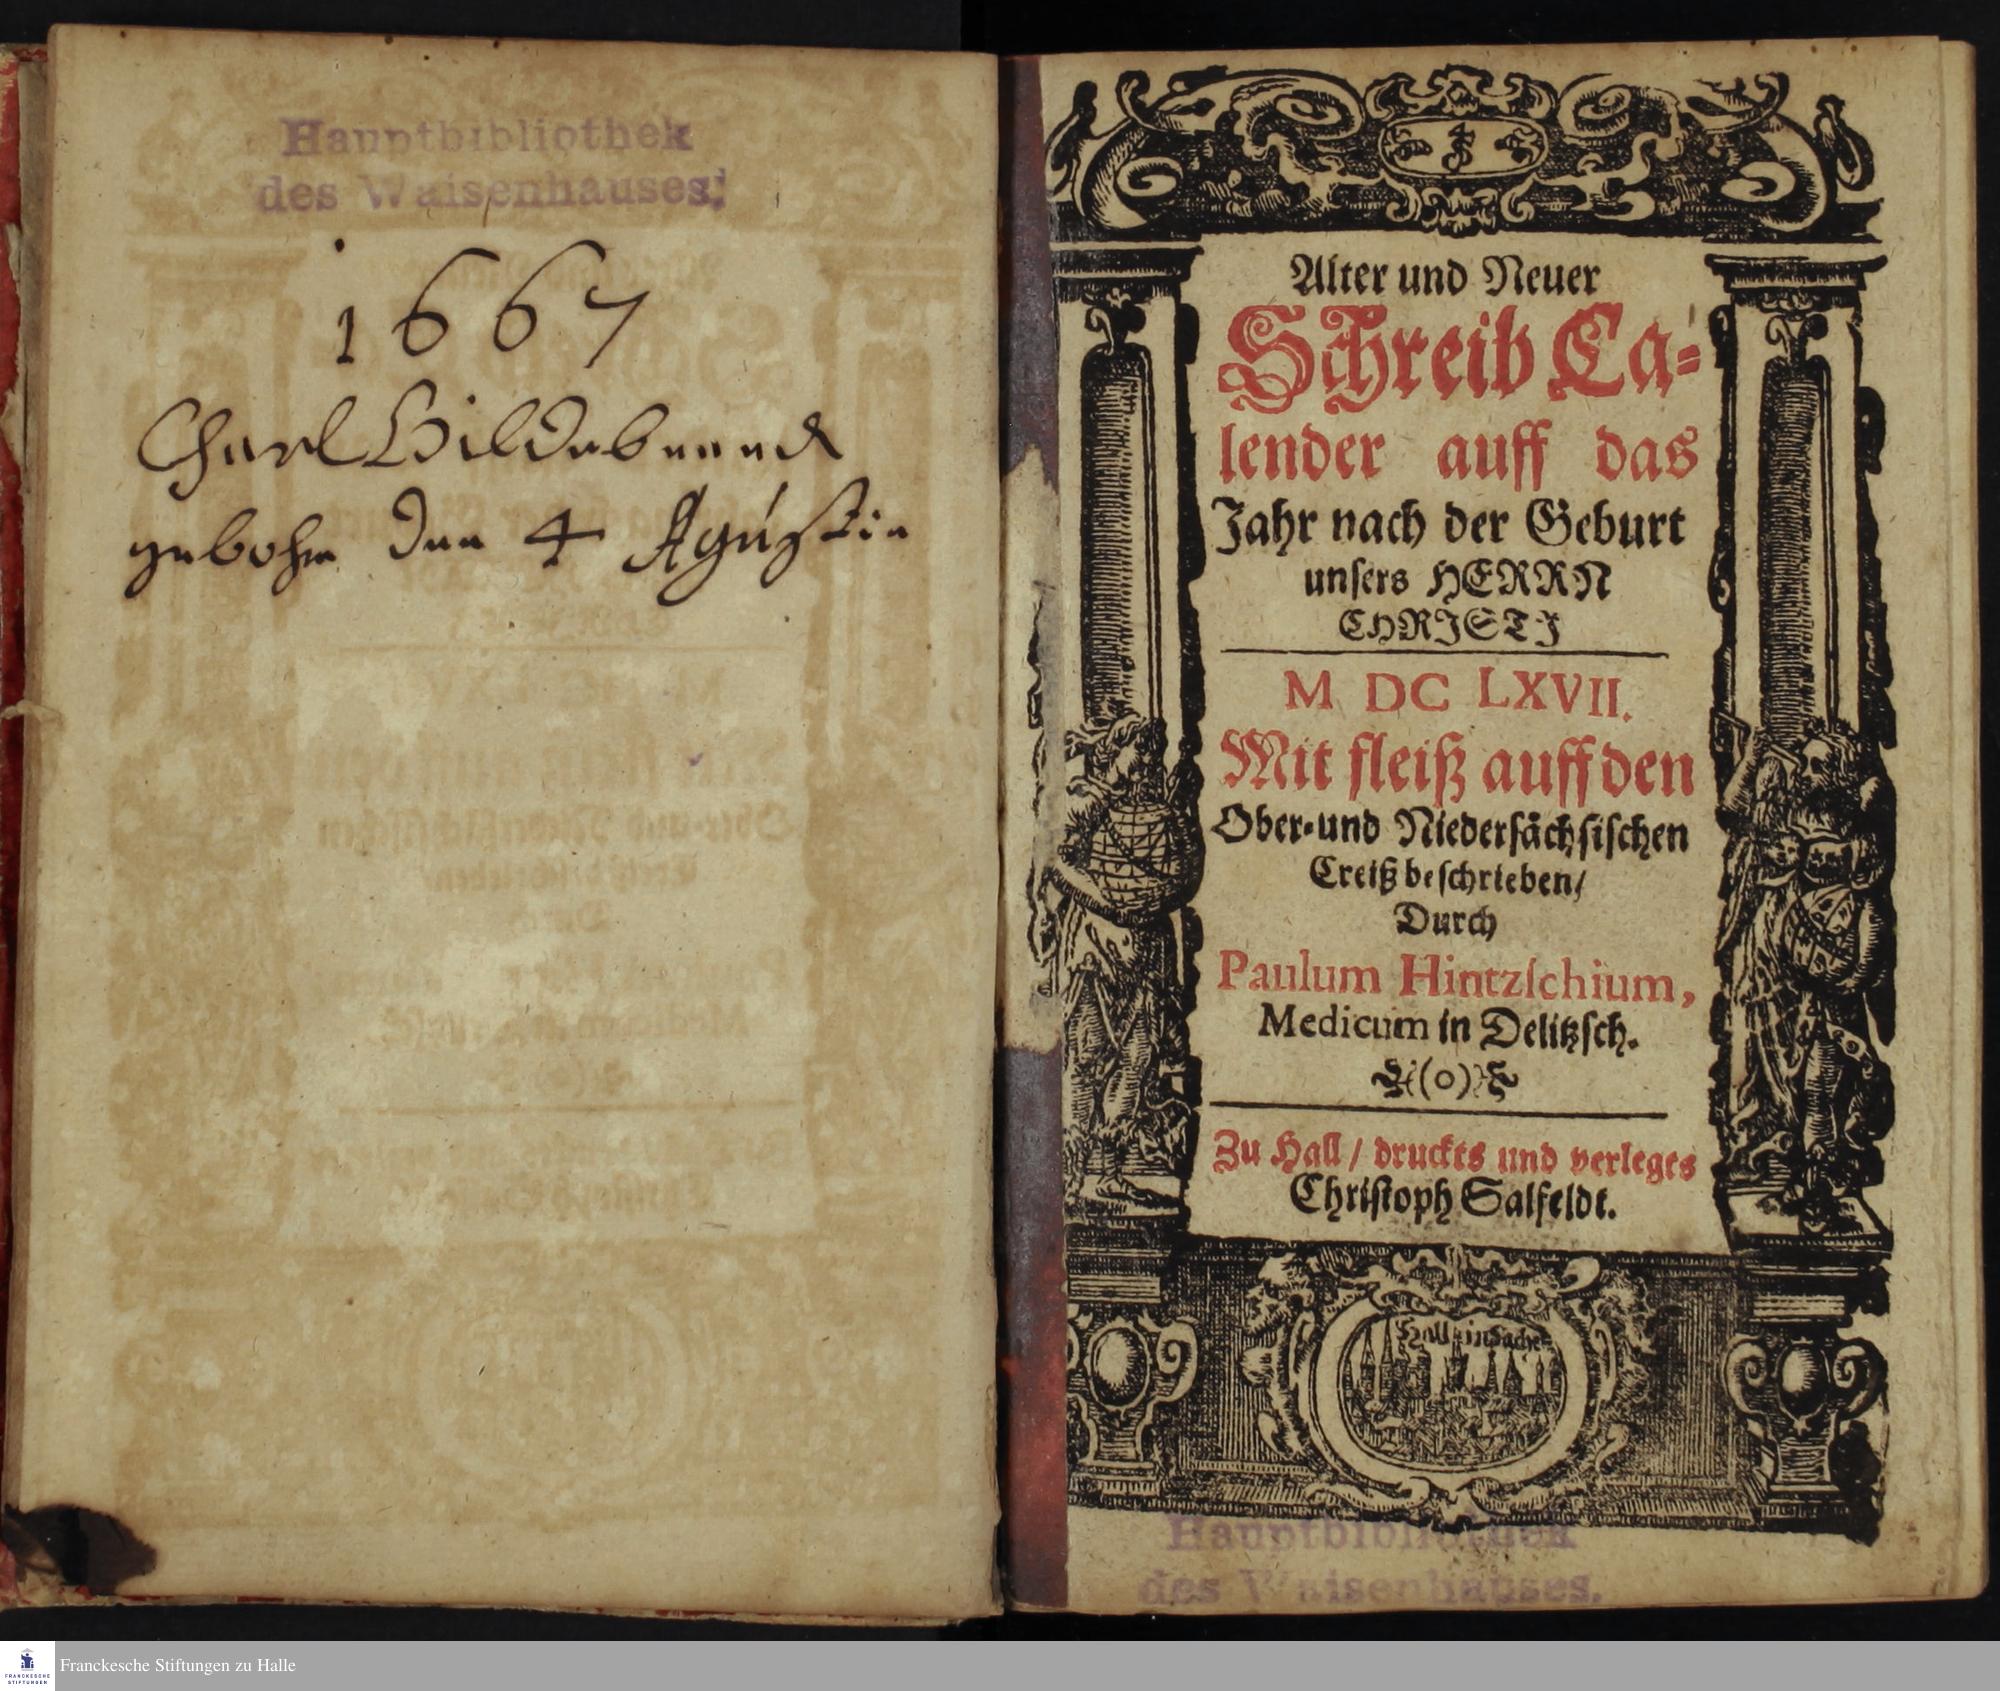 Hauptbibliothek
des Waisenhauses.
1667
Charl Hildebrand
gebohrn den 4 Agustin
Alter und Neuer
Schreib Ca-
lender auff das
Jahr nach der Geburt
unsers HERRN
CHRISTI
M DC LXVII.
Mit fleiß auff den
Ober-und Niedersächsischen
Creiß beschrieben/
Durch
Paulum Hintzschium,
Medicum in Delitzsch.
(o)
Zu Hall / druckts und verlegts
Christoph Salfeldt.
Hall in Sachs
Hauptbibliothek
des Waisenhauses.
FRANCKESCHE
STIFTUNGEN
Franckesche Stiftungen zu Halle